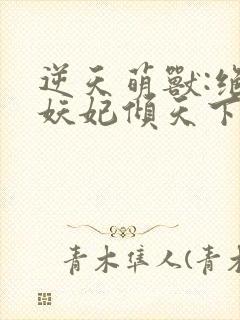 逆天萌獸:絕
妖妃傾天下
青木隼人(青木